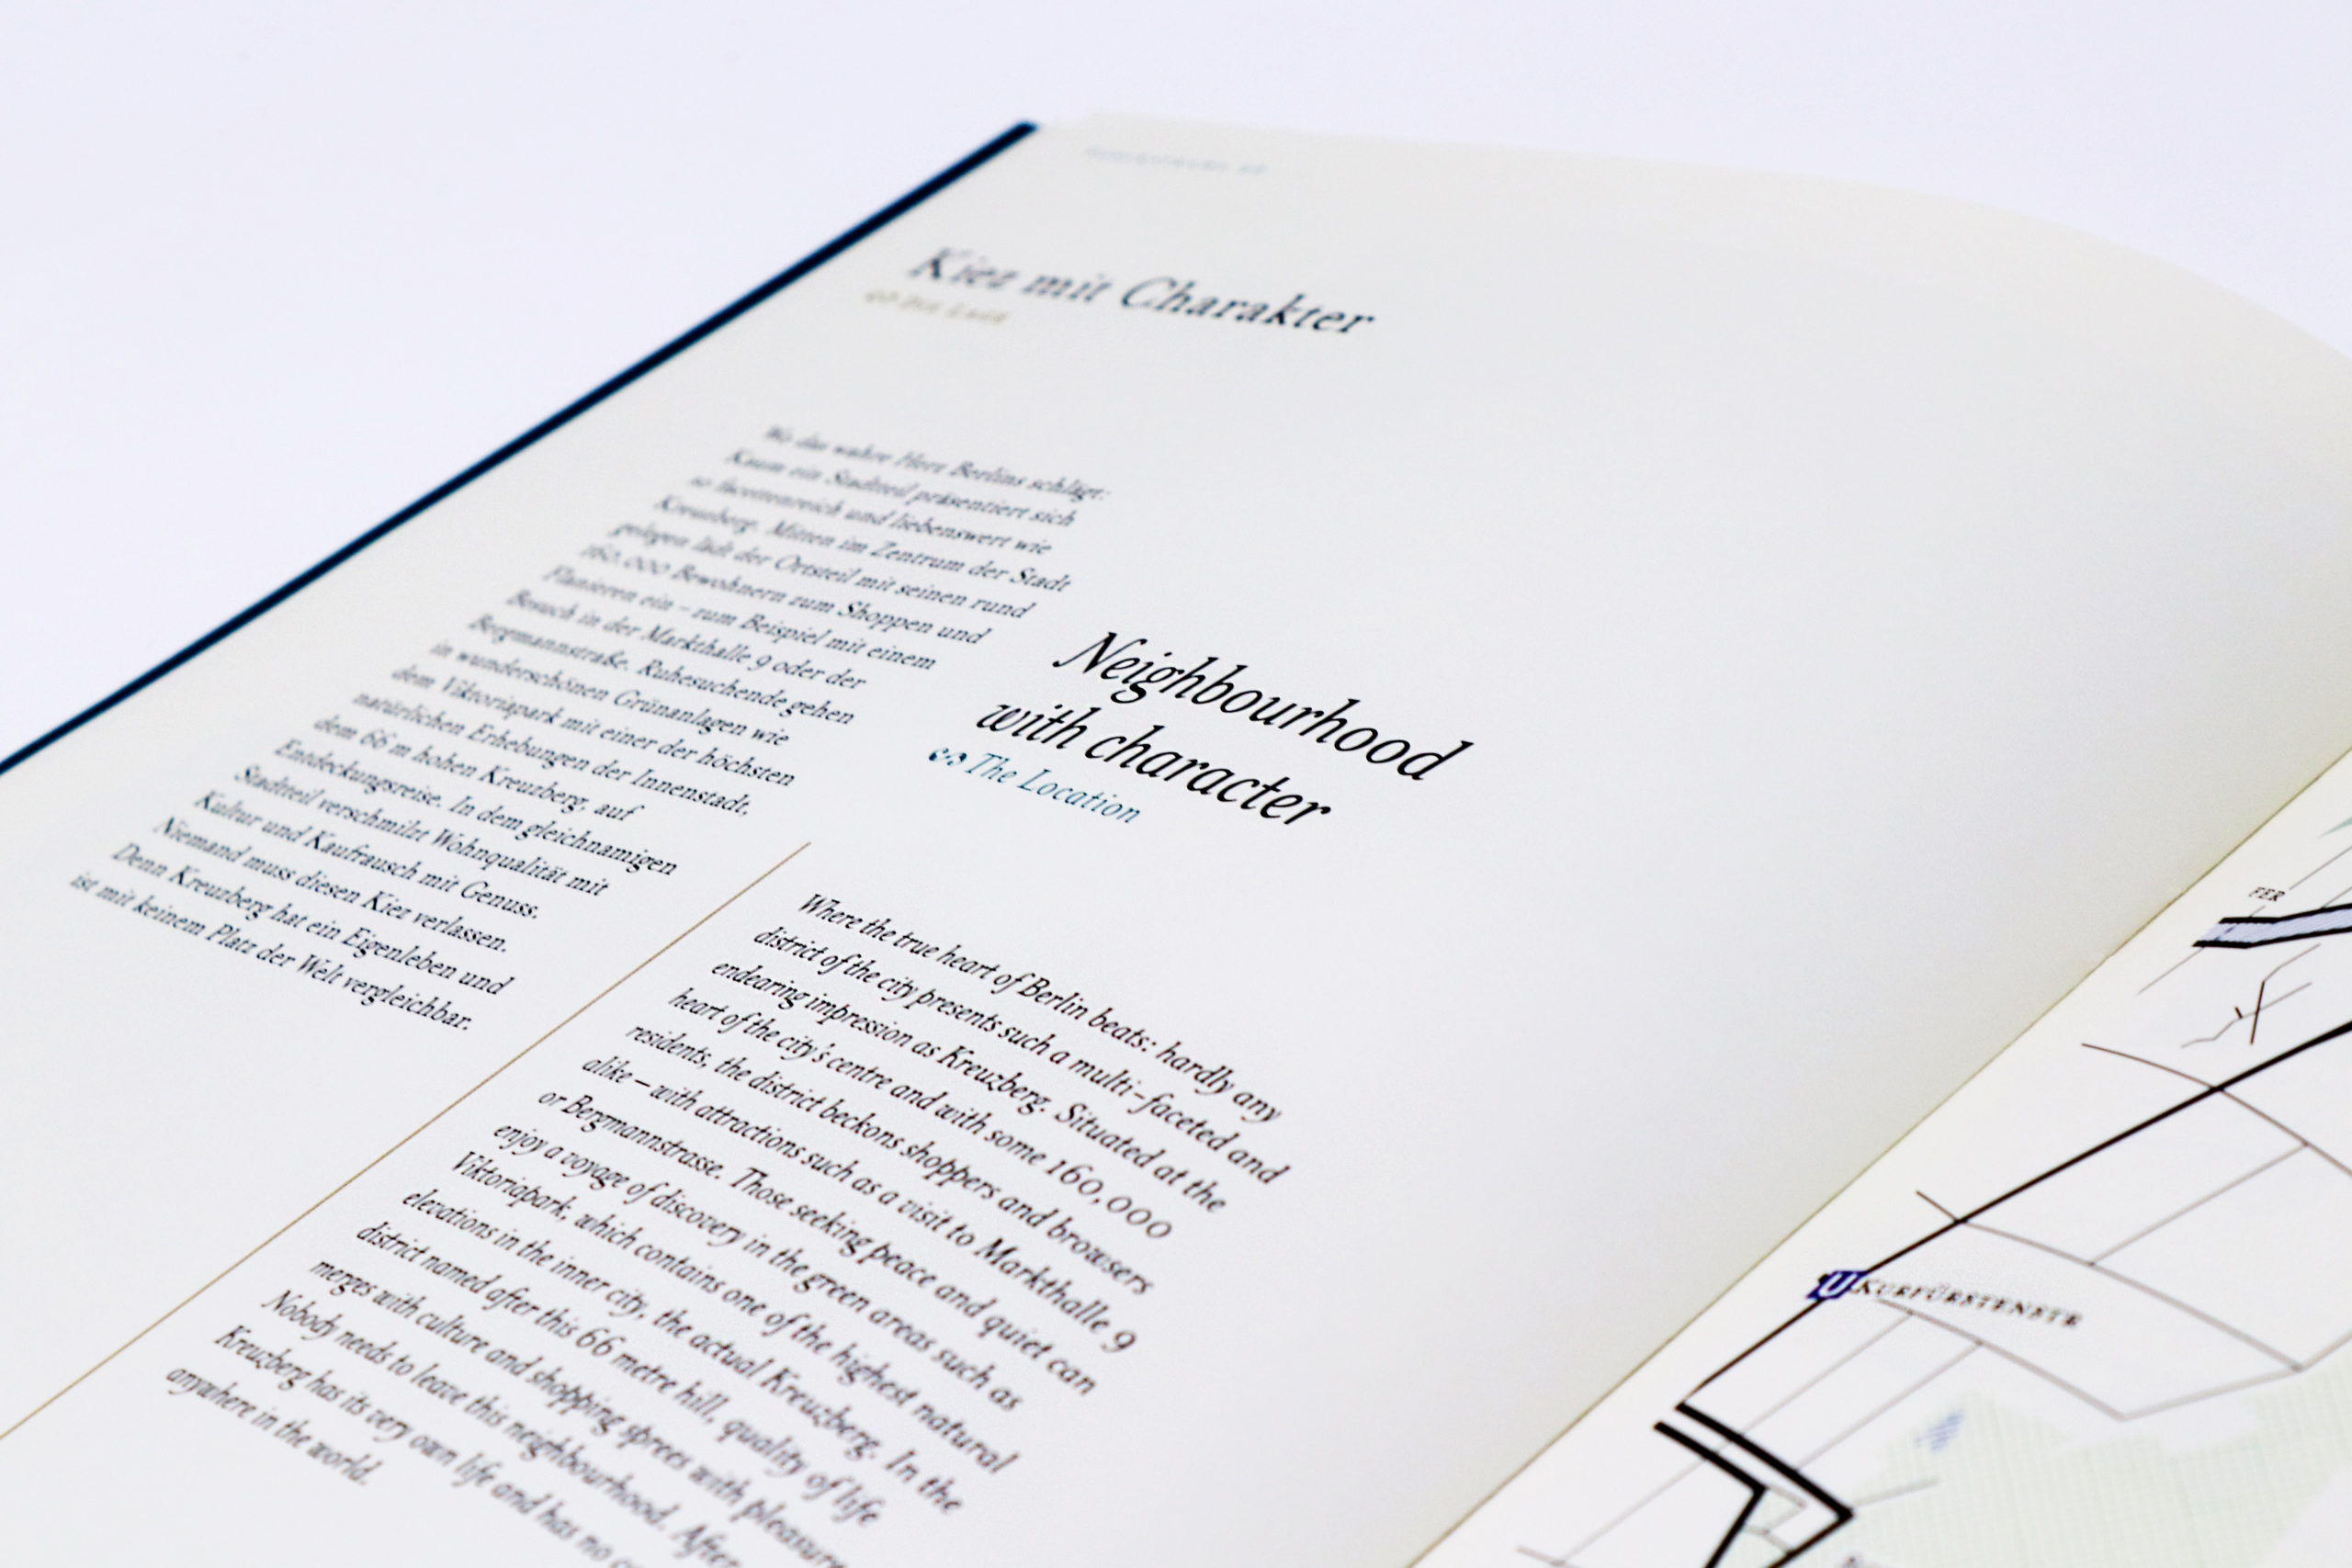 Kiez mit Charakter
Die Lage
Wo das wahre Herz Berlins schlägt:
Kaum ein Stadtteil präsentiert sich
so facettenreich und liebenswert wie
Kreuzberg. Mitten im Zentrum der Stadt
gelegen lädt der Ortsteil mit seinen rund
160.000 Bewohnern zum Shoppen und
Flanieren ein – zum Beispiel mit einem
Besuch in der Markthalle 9 oder der
Bergmannstraße. Ruhesuchende gehen
in wunderschönen Grünanlagen wie
dem Viktoriapark mit einer der höchsten
natürlichen Erhebungen der Innenstadt,
dem 66 m hohen Kreuzberg, auf
Entdeckungsreise. In dem gleichnamigen
Stadtteil verschmilzt Wohnqualität mit
Kultur und Kaufrausch mit Genuss.
Niemand muss diesen Kiez verlassen.
Denn Kreuzberg hat ein Eigenleben und
ist mit keinem Platz der Welt vergleichbar.
Neighbourhood
with character
The Location
Where the true heart of Berlin beats: hardly any
district of the city presents such a multi-faceted and
endearing impression as Kreuzberg. Situated at the
heart of the city's centre and with some 160,000
residents, the district beckons shoppers and browsers
alike – with attractions such as a visit to Markthalle 9
or Bergmannstrasse. Those seeking peace and quiet can
enjoy a voyage of discovery in the green areas such as
Viktoriapark, which contains one of the highest natural
elevations in the inner city, the actual Kreuzberg. In the
district named after this 66 metre hill, quality of life
merges with culture and shopping sprees with pleasure
Nobody needs to leave this neighbourhood. After
Kreuzberg has its very own life and has no
anywhere in the world.
FER
U KURFÜRSTENSTR